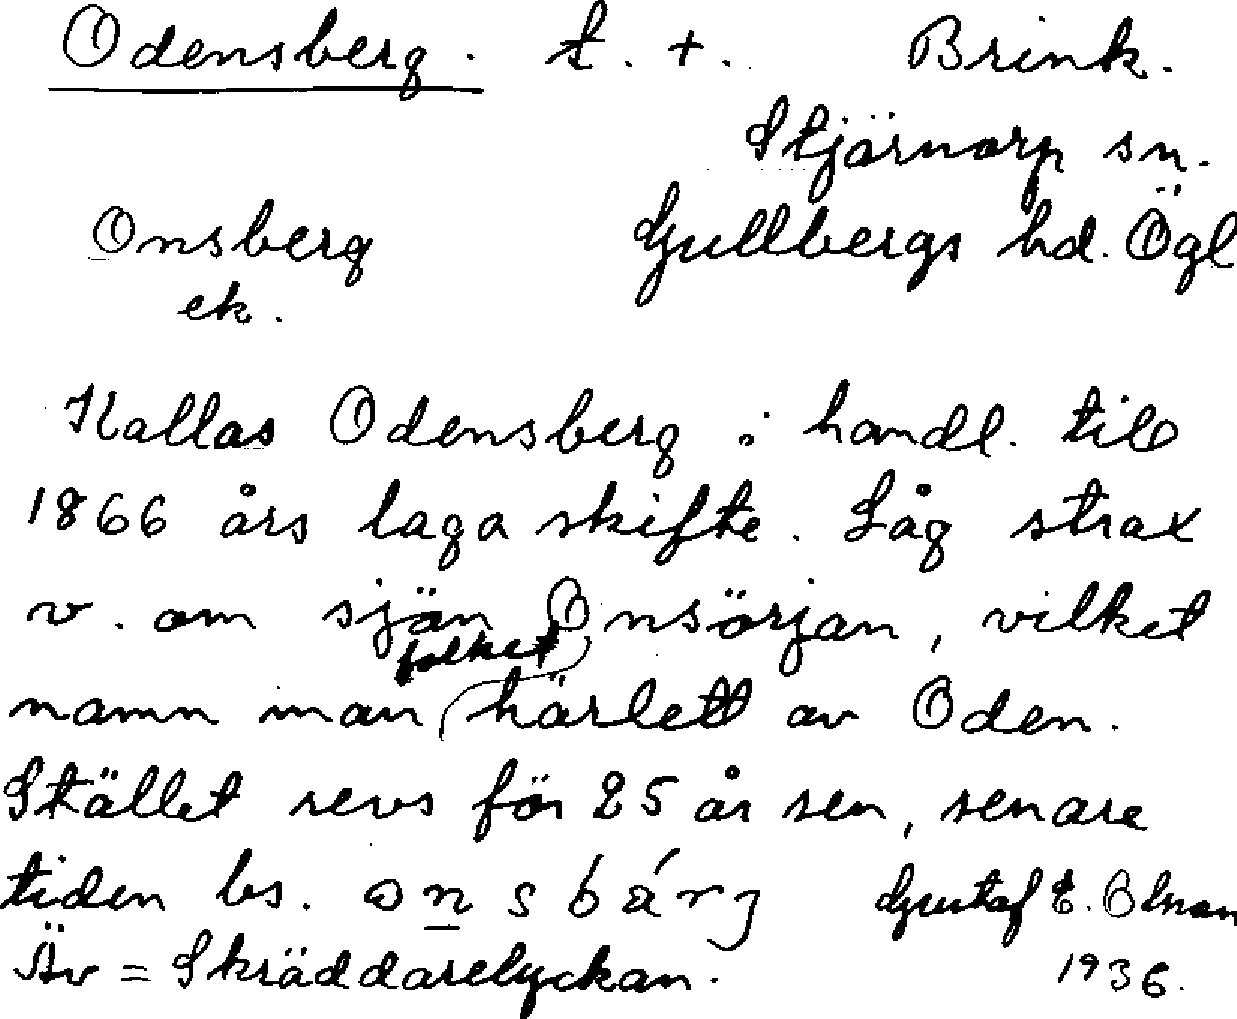 Odensberg. t. +. Brink.
Stjärnorp sn.
Onsberg Gullbergs hd. Ögl
ek.
Kallas Odensberg i handl. till
1866 års laga skifte. Låg strax
v. om sjön Onsörjan, vilket
folket
namn man härlett av Oden.
Stället revs för 25 år sen, senare
tiden bs. o n s b á r j Gustaf E. Olson
Äv = Skräddarelyckan. 1936.